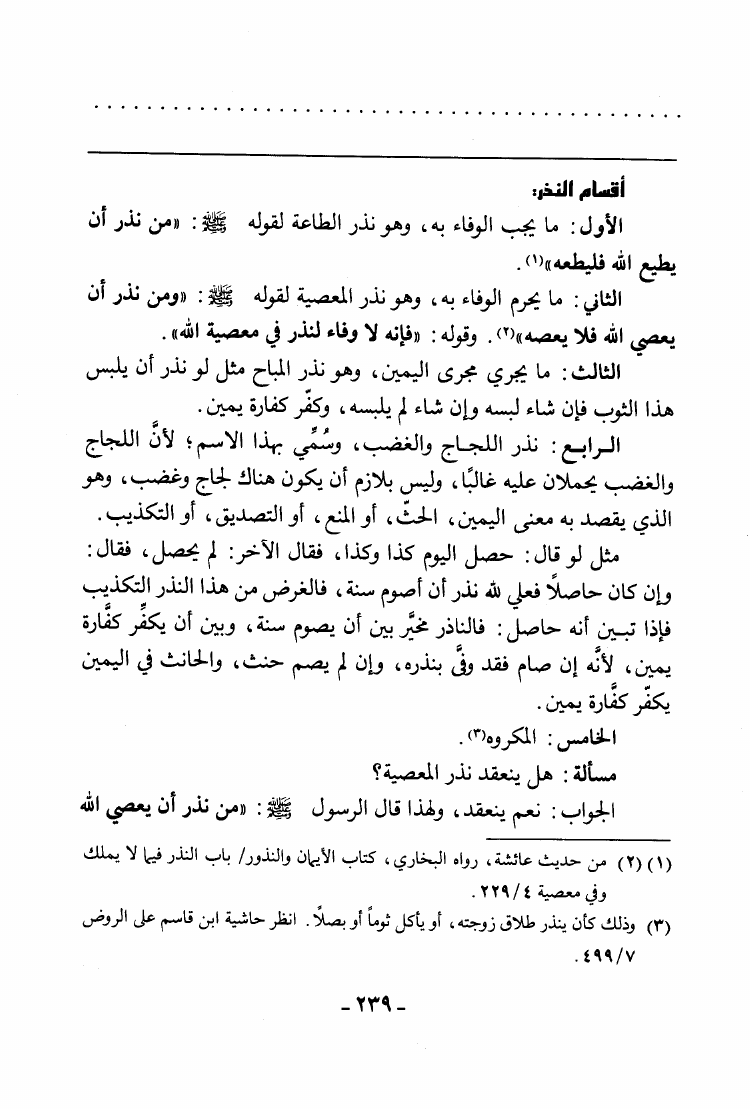 أقسام النذر:
الأول: ما يجب الوفاء به، وهو نذر الطاعة لقوله ﷺ: «من نذر أن
يطيع الله فليطعه»(١).
الثاني: ما يحرم الوفاء به، وهو نذر المعصية لقوله ﷺ: «ومن نذر أن
يعصي الله فلا يعصه»(٢). وقوله: «فإنه لا وفاء لنذر في معصية الله».
الثالث: ما يجري مجرى اليمين، وهو نذر المباح مثل لو نذر أن يلبس
هذا الثوب فإن شاء لبسه وإن شاء لم يلبسه، وكفّر كفارة يمين.
الـرابـع: نذر اللجـاج والغضب، وسُمِّي بهذا الاسم؛ لأنَّ اللجاج
والغضب يحملان عليه غالبًا، وليس بلازم أن يكون هناك لجاج وغضب، وهو
الذي يقصد به معنى اليمين، الحثّ، أو المنع، أو التصديق، أو التكذيب.
مثل لو قال: حصل اليوم كذا وكذا، فقال الآخر: لم يحصل، فقال:
وإن كان حاصلًا فعلي لله نذر أن أصوم سنة، فالغرض من هذا النذر التكذيب
فإذا تبـين أنه حاصل: فالناذر مخيَّر بين أن يصوم سنة، وبين أن يكفِّر كفَّارة
يمين، لأنَّه إن صام فقد وفَّى بنذره، وإن لم يصم حنث، والحانث في اليمين
يكفّر كفَّارة يمين.
الخامس: المكروه(٣).
مسألة: هل ينعقد نذر المعصية؟
الجواب: نعم ينعقد، ولهذا قال الرسول ﷺ: «من نذر أن يعصي الله
(١) (٢) من حديث عائشة، رواه البخاري، كتاب الأيمان والنذور/ باب النذر فيما لا يملك
وفي معصية ٤/٢٢٩.
(٣) وذلك كأن ينذر طلاق زوجته، أو يأكل ثوماً أو بصلًا. انظر حاشية ابن قاسم على الروض
٧/٤٩٩.
- ٢٣٩ -